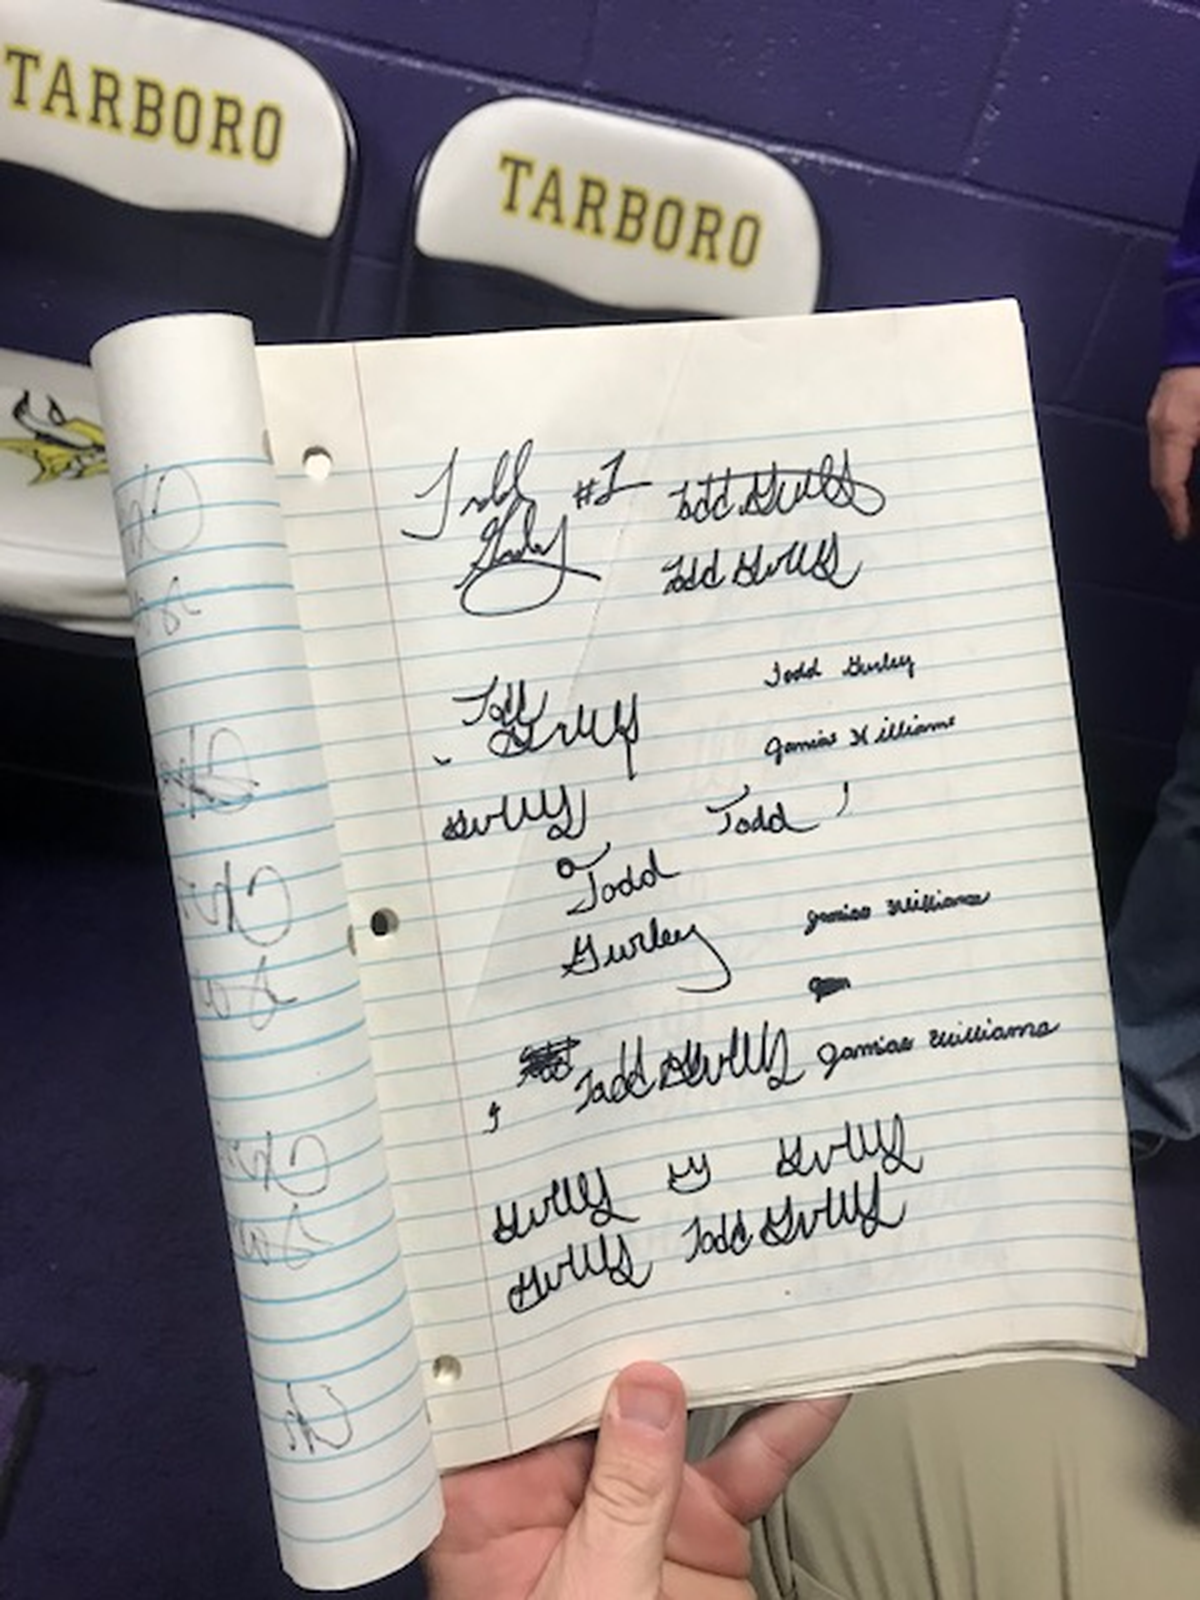 TARBORO
TARBORO
Todd #1 Todd Gurley
Gurley Todd Gurley
Todd Todd Gurley
Gurley Jamias Williams
Gurley Todd
Todd
Gurley Jamias Williams
Todd Gurley Jamias Williams
Gurley Gurley
Gurley Todd Gurley